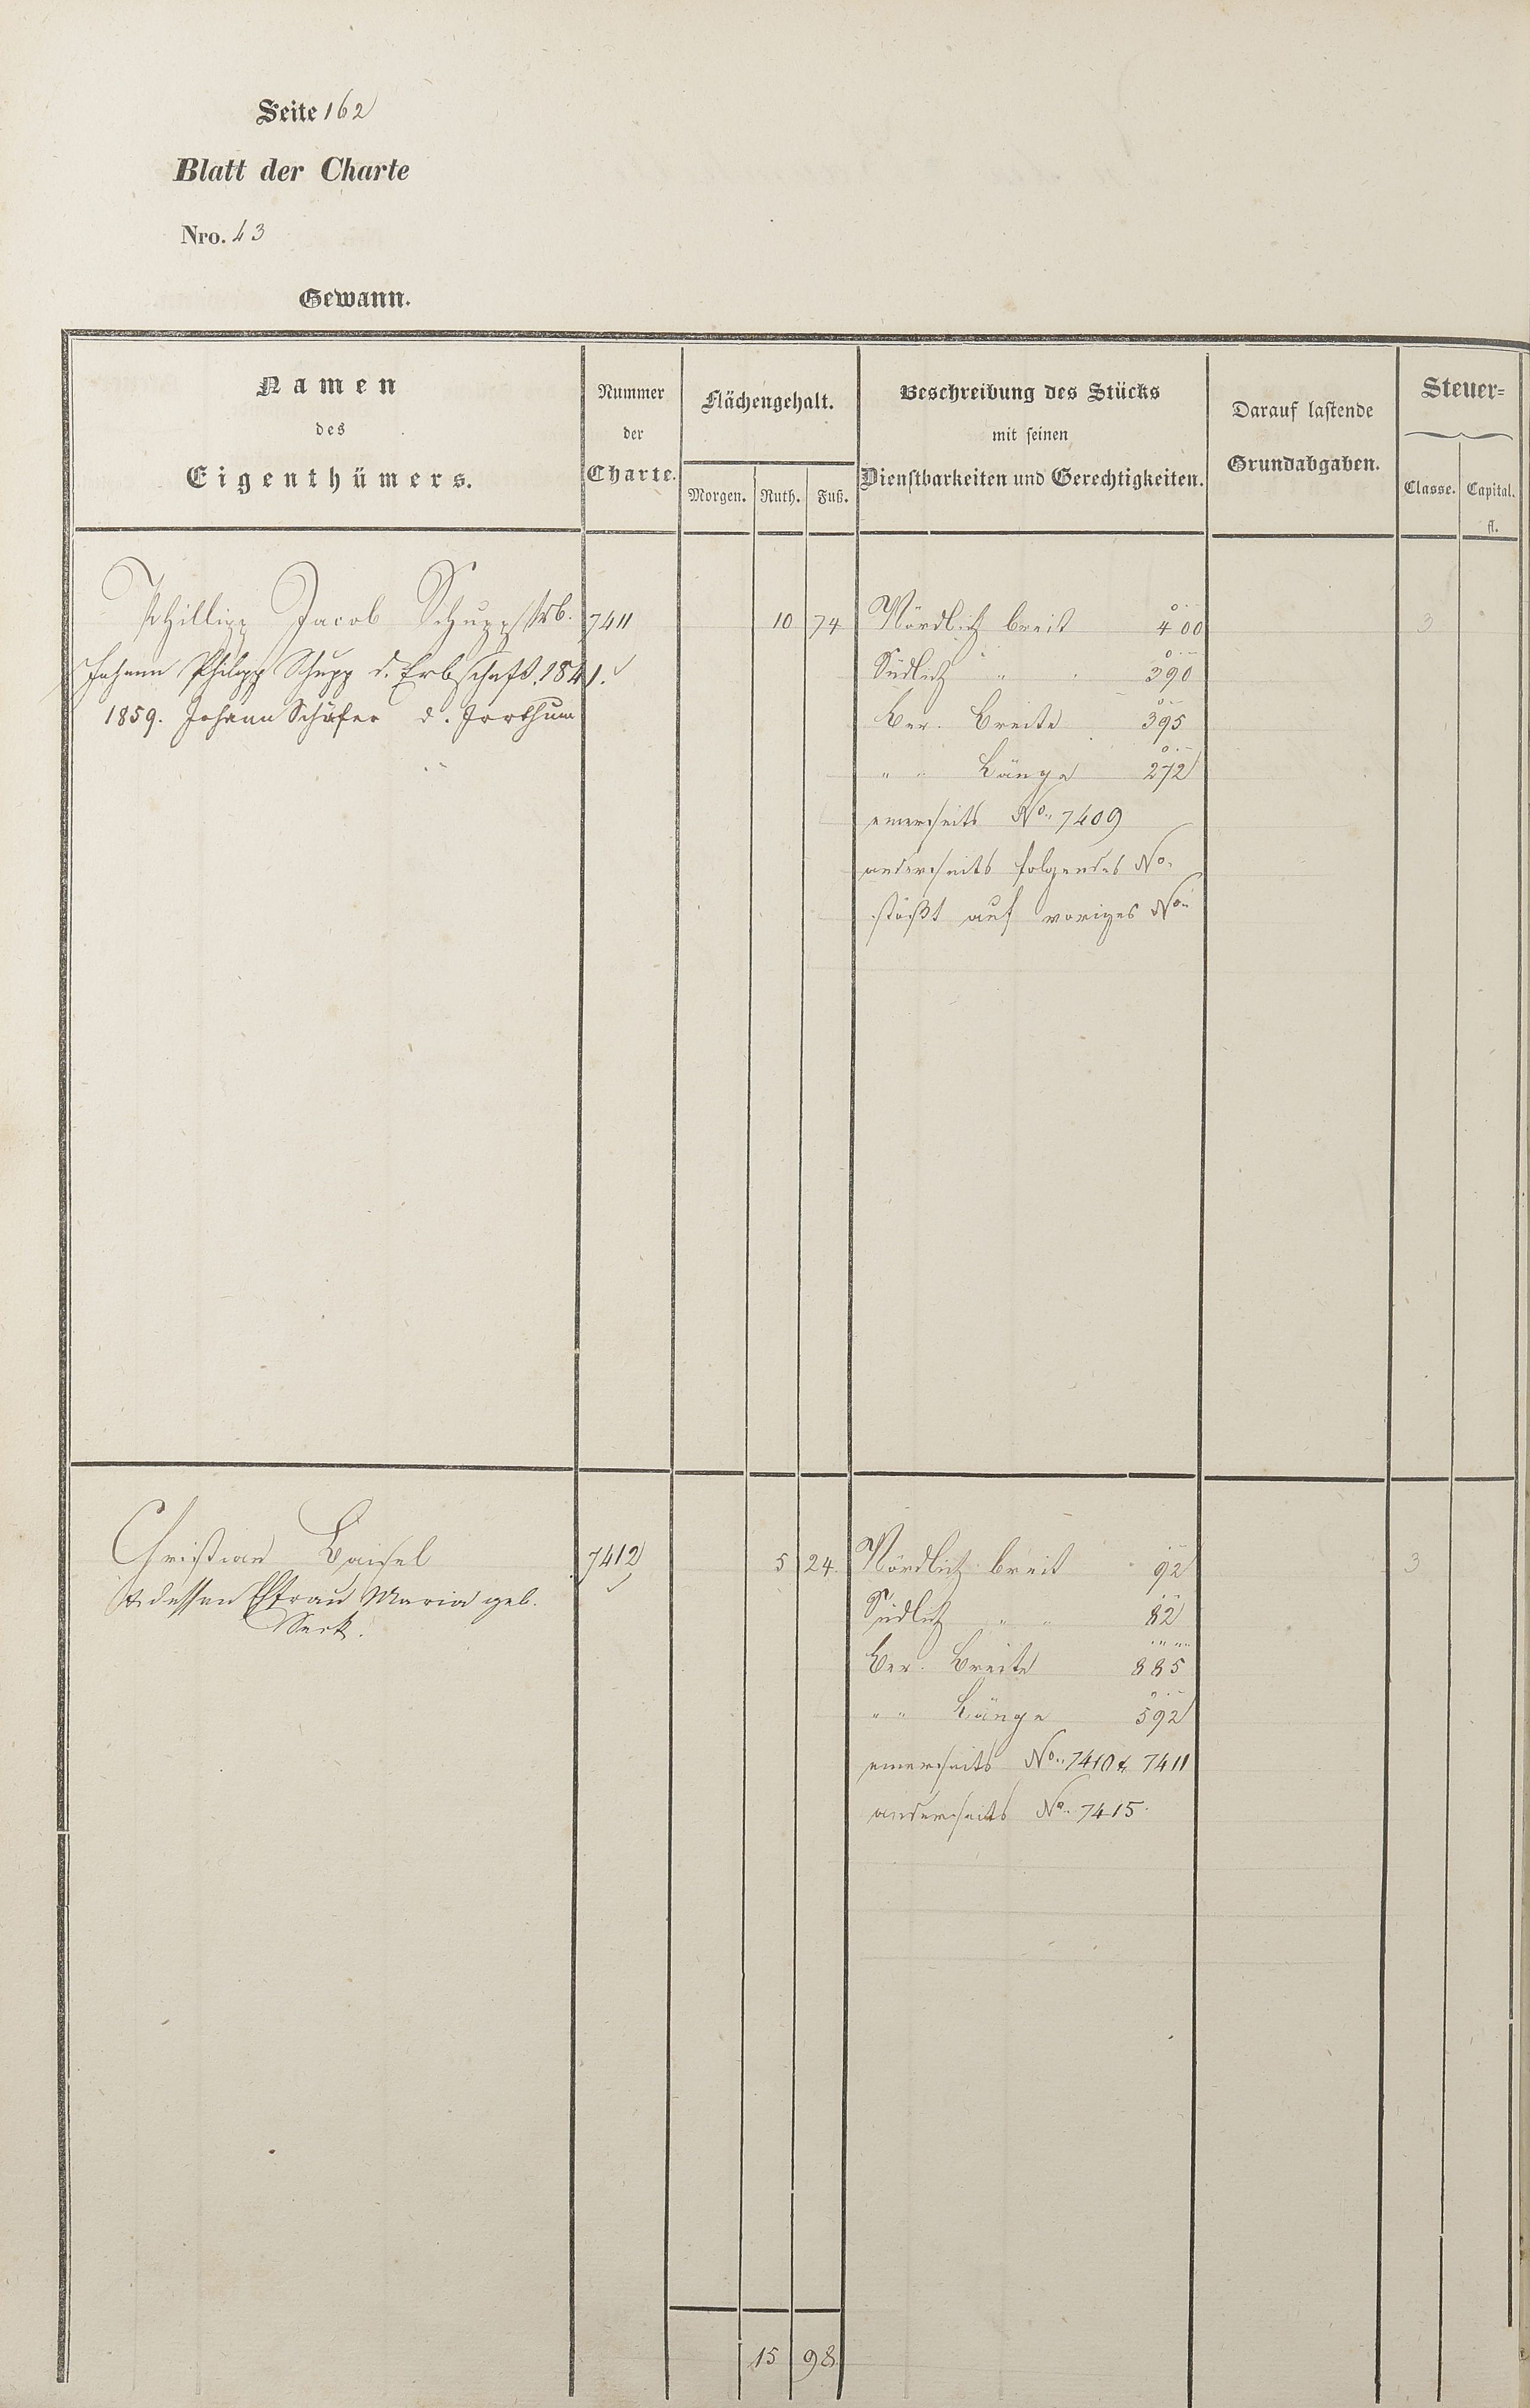 Seite 162
Blatt der Charte
Nro. 43
Gewann.
Namen
des
Eigenthümers.
Nummer
der
Charte.
Flächengehalt.
Morgen. Ruth. Fuß.
Beschreibung des Stücks
mit seinen
Dienstbarkeiten und Gerechtigkeiten.
Darauf lastende
Grundabgaben.
Steuer-
Classe. Capital.
fl.
Phillipp Jacob Schupp 7411 10 74 Nördlich breit 400 3
Johann Philipp Schupp d. Erbschaft. 1841. Südlich " " 390
1859. Johann Schäfer d. Irrthum Ber. Breite 395
" " Länge 272
einerseits No. 7409
anderseits folgendes No.
stößt auf voriges No.
Christian Baisel 7412 5 24 Nördlich breit 92 3
& dessen Ehfrau Maria geb. Südlich " " 82
Seck. Ber. Breite 885
" " Länge 592
einerseits No. 7410 & 7411
anderseits No. 7415.
15 98